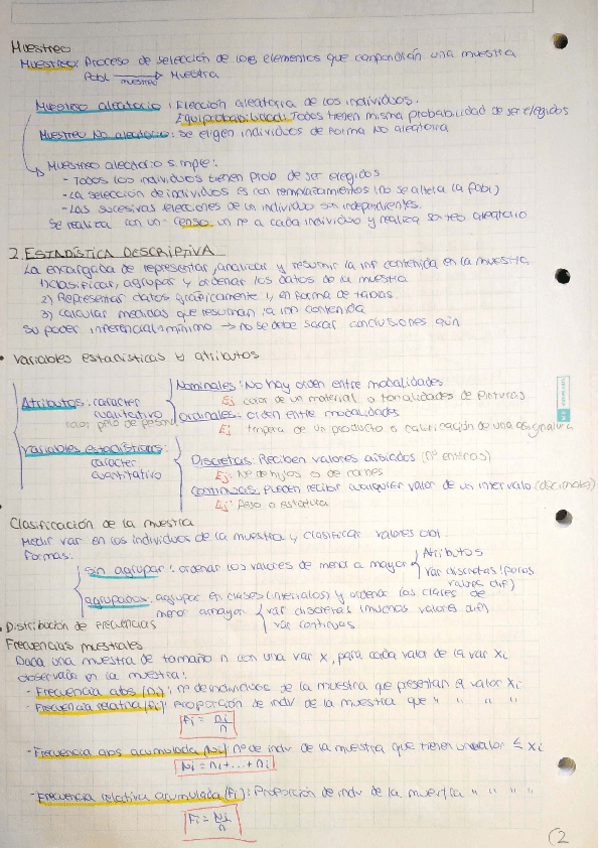 Muestreo
Muestreo: Proceso de selección de los elementos que compondrán una muestra
Pobl → Muestra
muestreo
Muestreo aleatorio: Elección aleatoria de los individuos.
Equiprobabilidad: Todos tienen misma probabilidad de ser elegidos
Muestreo No aleatorio: Se eligen individuos de forma No aleatoria
Muestreo aleatorio simple:
- Todos los individuos tienen prob de ser elegidos
- La selección de individuos es con remplazamientos (no se altera la pobl)
- Las sucesivas elecciones de un individuo son independientes.
Se realiza con un censo un nº a cada individuo y realiza sorteo aleatorio
2. ESTADÍSTICA DESCRIPTIVA
La encargada de representar, analizar y resumir la inf contenida en la muestra
1) clasificar, agrupar y ordenar los datos de la muestra
2) Representar datos gráficamente y en forma de tablas
3) calcular medidas que resuman la inf contenida
Su poder inferencial mínimo → no se debe sacar conclusiones aún
• Variables estadísticas y atributos
Nominales: No hay orden entre modalidades
Atributos: carácter
cualitativo
Ej color de un material o tonalidades de pinturas
Ordinales: orden entre modalidades
Ej tmpera de un producto o calificación de una asignatura
Variables estadísticas:
carácter
cuantitativo
Discretas: Reciben valores aislados (nº enteros)
Ej: Nº de hijos o de
Continuas: Pueden recibir cualquier valor de un intervalo
Ej: Peso o estatura
Clasificación de la muestra
Medir var en los individuos de la muestra y clasificar valores obt.
Formas:
sin agrupar: ordenar los valores de menor a mayor
Atributos
var discretas (pocos
valores dif)
agrupados: agrupar en clases (intervalos) y ordenar las clases de
menor a mayor
var discretas (muchos valores dif)
var continuas
• Distribución de frecuencias
Frecuencias muestrales
Dada una muestra de tamaño n con una var X, para cada valor de la var Xi
observado en la muestra:
- Frecuencia abs (ni): nº de individuos de la muestra que presentan el valor Xi
- Frecuencia relativa (fi): Proporción de indiv de la muestra que " " " "
fi = ni/n
- Frecuencia abs acumulada (Ni): nº de indiv de la muestra que tienen un valor ≤ Xi
Ni = n1 + ... + ni
- Frecuencia relativa acumulada (Fi): Proporción de indv de la muestra " " " "
Fi = Ni/n
2